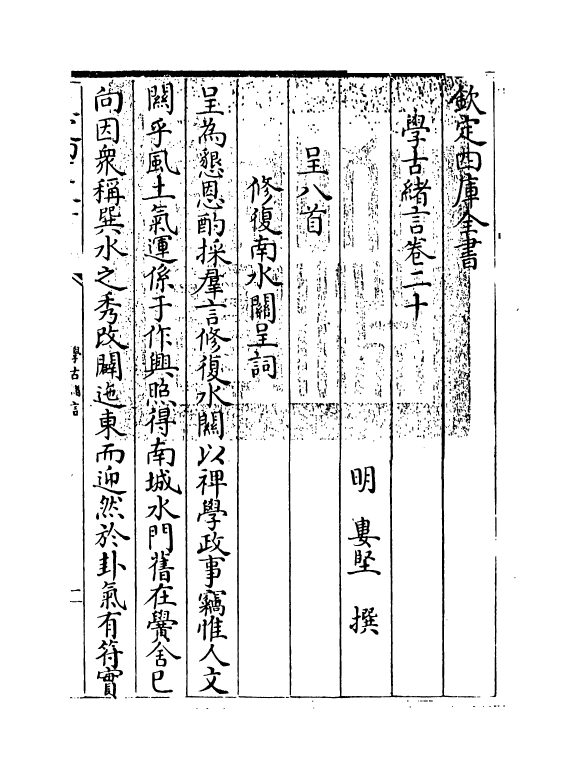 欽定四庫全書
學古緒言卷二十
明 婁堅 撰
呈八首
修復南水關呈詞
呈為懇恩酌採羣言修復水關以裨學政事竊惟人文
關乎風土氣運係于作興照得南城水門舊在黌舍巳
向因衆稱巽水之秀改闢迤東而迎然於卦氣有符實
學古緒言
一